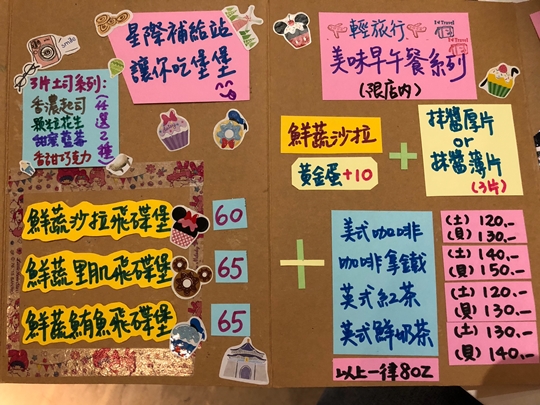 星際補給站
讓你吃堡堡
3片土司系列:
(任選2種)
香濃起司
顆粒花生
甜蜜藍莓
香甜巧克力
鮮蔬沙拉飛碟堡 60
鮮蔬里肌飛碟堡 65
鮮蔬鮪魚飛碟堡 65
輕旅行
I ♥ Travel
美味早午餐系列
(限店內)
鮮蔬沙拉
黃金蛋+10
+
抹醬厚片
or
抹醬薄片
(3片)
+
美式咖啡 (土) 120.-
(貝) 130.-
咖啡拿鐵 (土) 140.-
(貝) 150.-
英式紅茶 (土) 120.-
(貝) 130.-
英式鮮奶茶 (土) 130.-
(貝) 140.-
以上一律8OZ